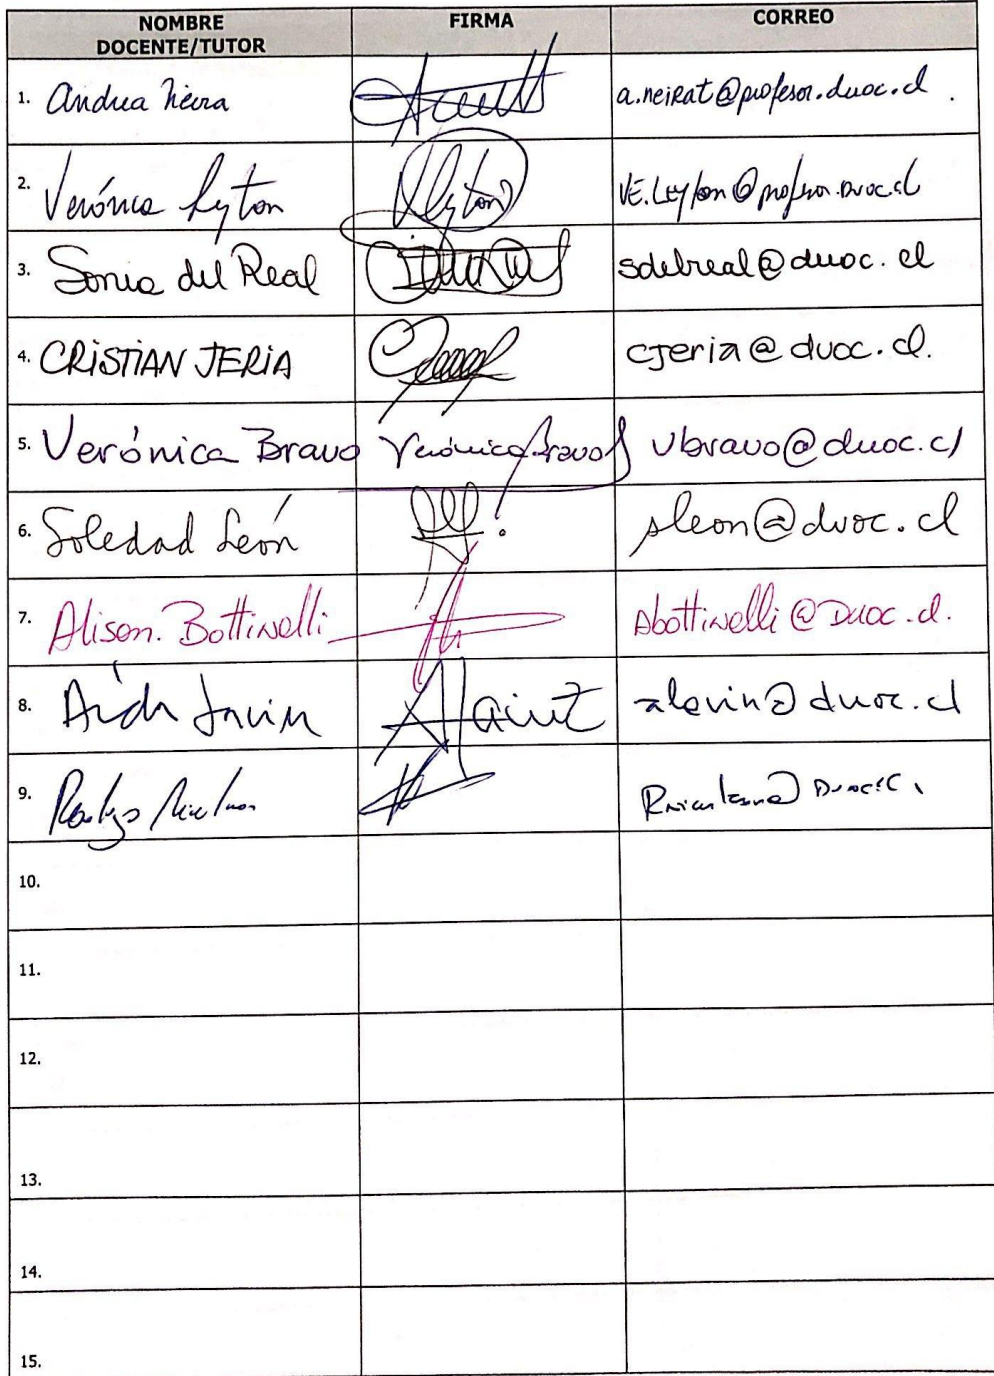 NOMBRE DOCENTE/TUTOR FIRMA CORREO
1. Andrea Neira a.neirat@profesor.duoc.cl
2. Verónica Leyton VE.Leyton@profesor.duoc.cl
3. Sonia del Real sdelreal@duoc.cl
4. CRISTIAN JERIA cjeria@duoc.cl.
5. Verónica Bravo Verónica Bravo vbravo@duoc.cl
6. Soledad León sleon@duoc.cl
7. Alison. Bottinelli Abottinelli@Duoc.cl.
8. Aída Lavín alavin@duoc.cl
9.
10.
11.
12.
13.
14.
15.